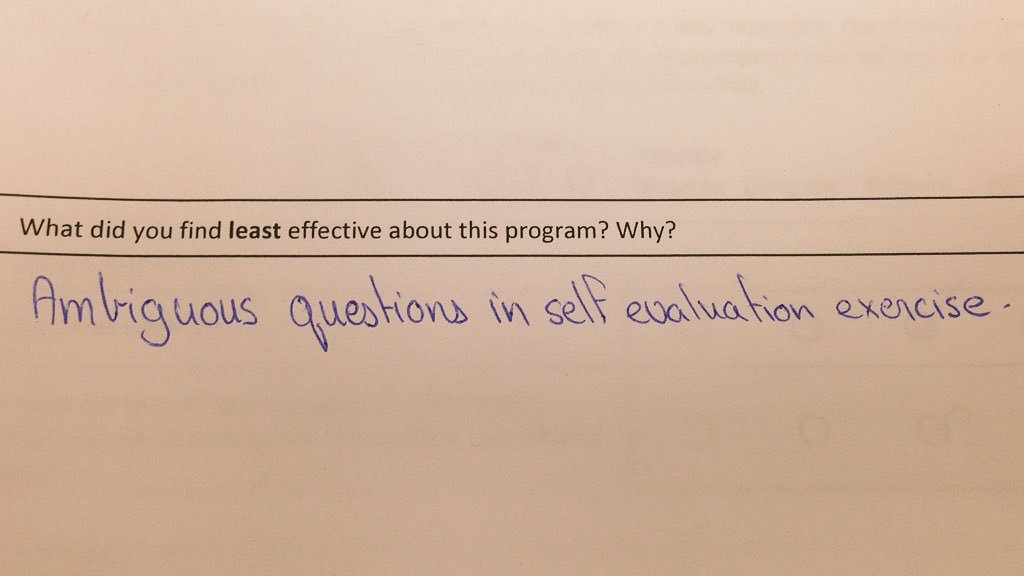 What did you find least effective about this program? Why?
Ambiguous questions in self evaluation exercise.